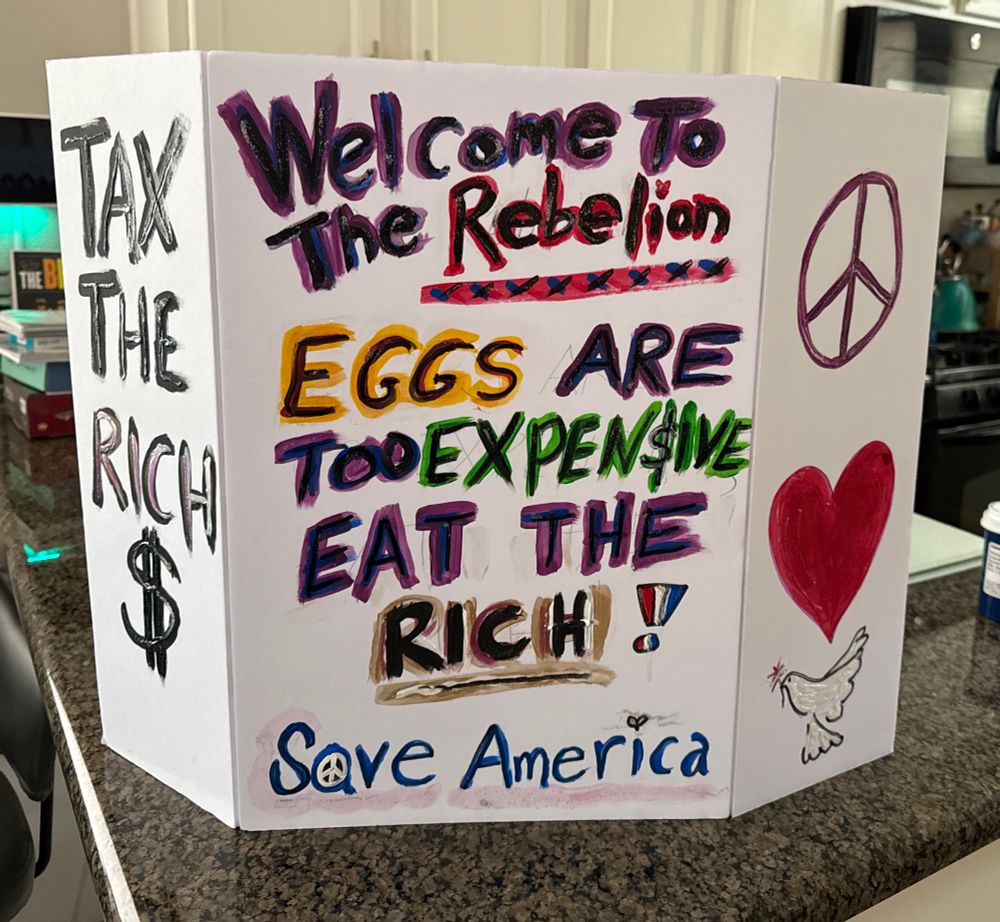 TAX
THE
RICH
$
Welcome To
The Rebelion
EGGS ARE
TOO EXPEN$IVE
EAT THE
RICH !
Save America
THE B